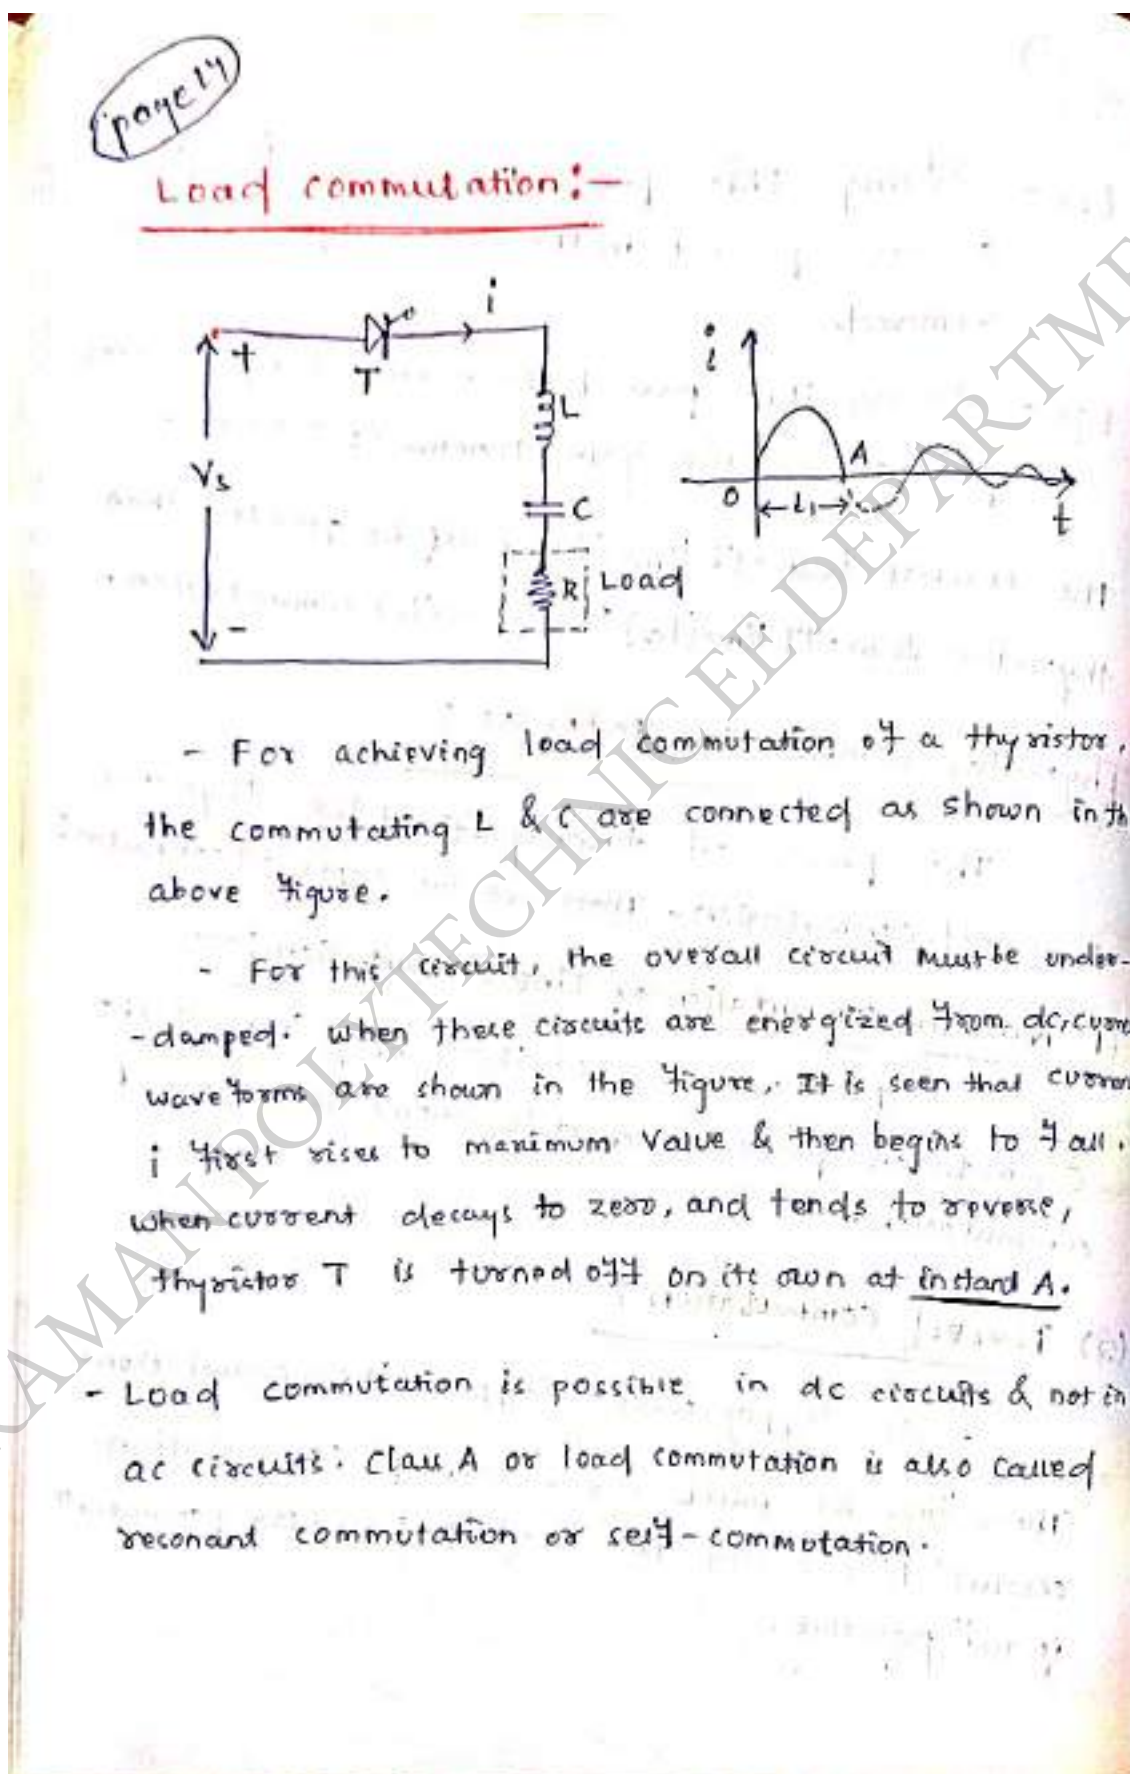 page 14
Load commutation:-
i
+
T
L
Vs
C
R
Load
-
i
A
0
t1
t
- For achieving load commutation of a thyristor,
the commutating L & C are connected as shown in th
above figure.
- For this circuit, the overall circuit must be under-
-damped. when these circuits are energized from dc, curre
waveforms are shown in the figure. It is seen that curren
i first rises to maximum value & then begins to fall.
when current decays to zero, and tends to reverse,
thyristor T is turned off on its own at instand A.
- Load commutation is possible in dc circuits & not in
ac circuits. Class A or load commutation is also called
resonant commutation or self-commutation.
RAMAN POLYTECHNIC EE DEPARTME